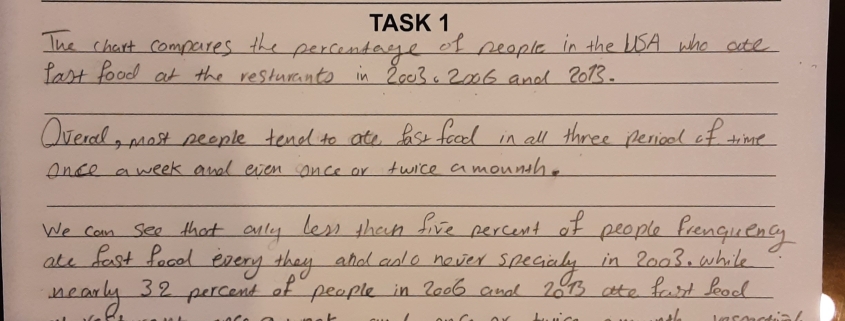 TASK 1
The chart compares the percentage of people in the USA who ate
fast food at the resturants in 2003, 2006 and 2013.
Overal, most people tend to ate fast food in all three period of time
once a week and even once or twice a mounth.
We can see that only less than five percent of people frenquency
ate fast food every they and also never specialy in 2003. while
nearly 32 percent of people in 2006 and 2013 ate fast food
once a week and once or twice